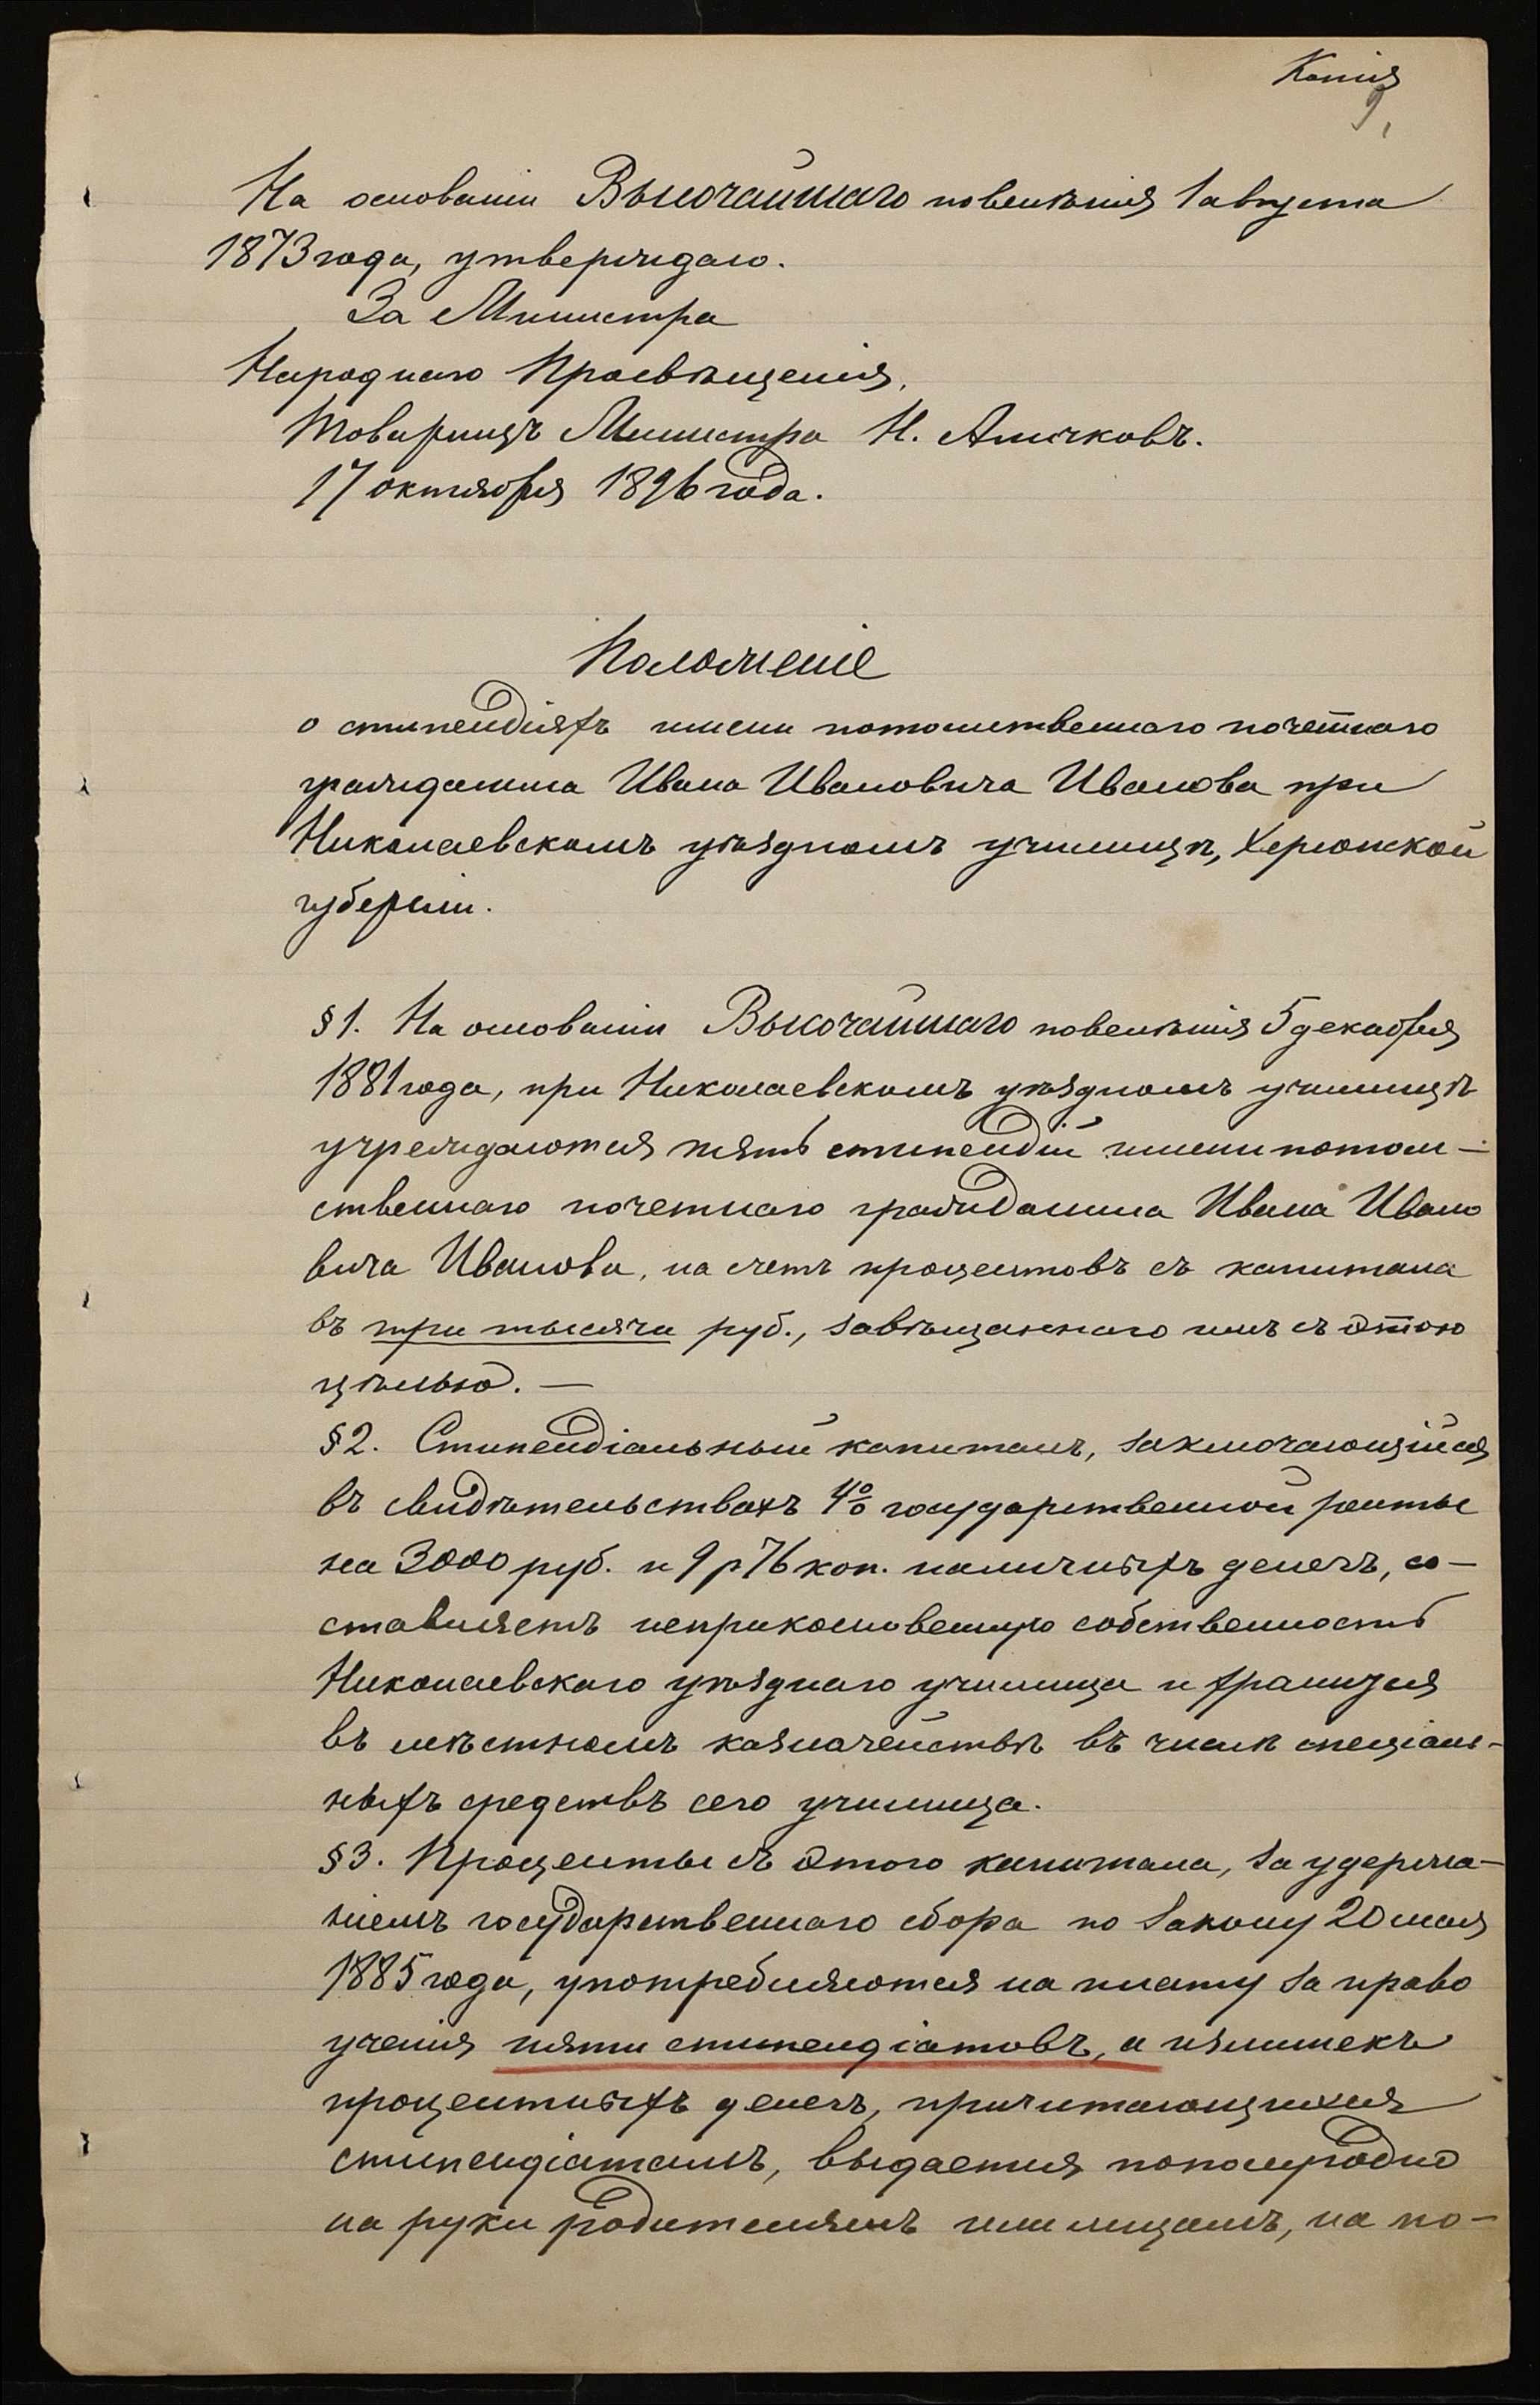 Копія
9
На основаніи Высочайшаго повелѣнія 1 августа
1873 года, утверждаю.
За Министра
Народнаго Просвѣщенія,
Товарищъ Министра Н. Аничковъ.
17 октября 1896 года.
Положеніе
о стипендіяхъ имени потомственнаго почетнаго
гражданина Ивана Ивановича Иванова при
Николаевскомъ уѣздномъ училищѣ, Херсонской
губерніи.
§ 1. На основаніи Высочайшаго повелѣнія 5 декабря
1881 года, при Николаевскомъ уѣздномъ училищѣ
учреждаются пять стипендій имени потом-
ственнаго почетнаго гражданина Ивана Ивано
вича Иванова, на счетъ процентовъ съ капитала
въ три тысячи руб., завѣщаннаго имъ съ этою
цѣлью. —
§ 2. Стипендіальный капиталъ, заключающійся
въ свидѣтельствахъ 4% государственной ренты
на 3000 руб. и 9 р 76 коп. наличныхъ денегъ, со-
ставляетъ неприкосновенную собственность
Николаевскаго уѣзднаго училища и хранится
въ мѣстномъ казначействѣ въ числѣ спеціаль-
ныхъ средствъ сего училища.
§ 3. Проценты съ этого капитала, за удержа-
ніемъ государственнаго сбора по закону 20 мая
1885 года, употребляются на плату за право
ученія пяти стипендіатовъ, а излишекъ
процентныхъ денегъ, причитающихся
стипендіатамъ, выдается пополугодно
на руки родителямъ или лицамъ, на по-